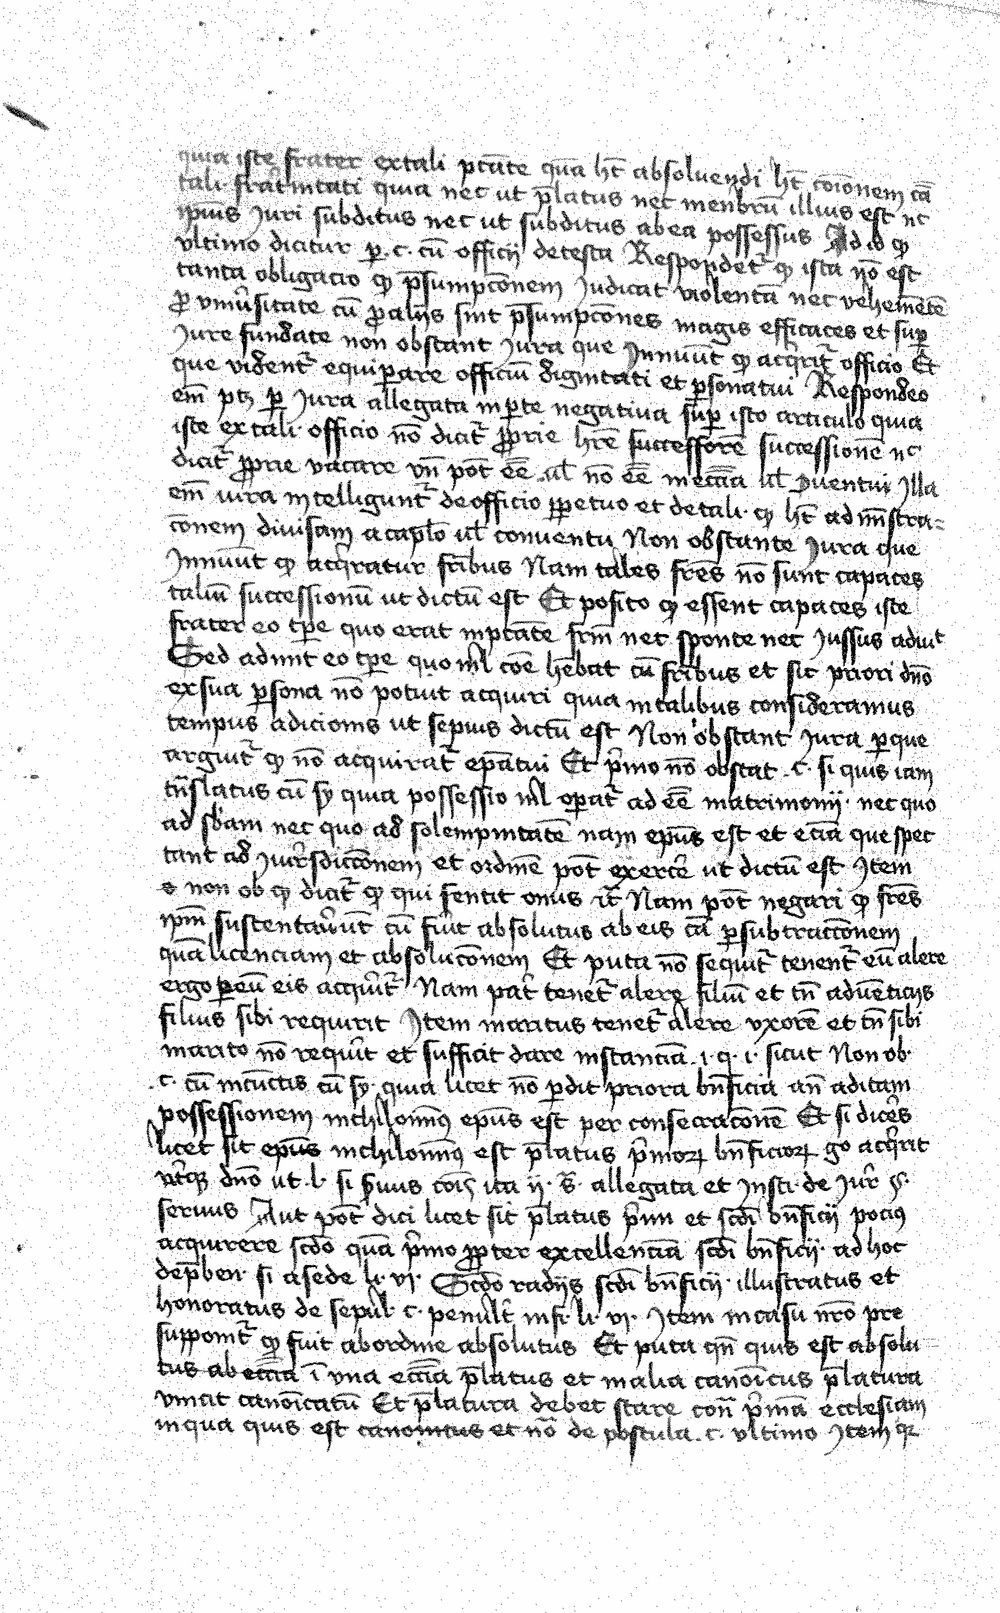 quia iste frater ex tali ptate qua ht absoluendi ht coionem ca
tali frat'nitati quia nec ut platus nec menbru illius est nc
ipius Juri subditus nec ut subditus ab ea possessus Ad id q
vltimo dicitur p. c. cu officii detesta Respondet' q ista no est
tanta obligacio q psumpconem Judicat violenta nec vehemete
p vniu'sitate cu p aliis sint psumpcones magis efficaces et sup
Jure fundate non obstant Jura que Innuut q acq'rit' officio Et
que vident' equipare officiu dignitati et psonatui Respondeo
em ptz p Jura allegata in pte negatiua sup isto articulo quia
iste ex tali officio no dicit' pprie hre successore successione nc
dicit' pprie vacare vn pot ee ul' no ee in eccia ul' 9uentui Illa
em iura intelligunt' de officio ppetuo et de tali q ht adm'istra-
conem diuisam a caplo ul' conuentu Non obstante Jura que
Innuut q acq'ratur fribus Nam tales fres no sunt capaces
taliu successionu ut dictu est Et posito q essent capaces iste
frater eo tpe quo erat in ptate frm nec sponte nec Jussus adiuit
Sed adiuit eo tpe quo nl' coe hebat cu fribus et sic priori dno
ex sua psona no potuit acquiri quia in talibus consideramus
tempus adicionis ut sepius dictu est Non obstant Jura p que
arguit' q no acquirat' epatui Et p'mo no obstat c. si quis iam
tnslatus cu sy quia possessio nl' opat' ad ee matrimonii nec quo
ad sbam nec quo ad solempnitate nam epus est et ecia que spec
tant ad Jurisdicconem et ordine pot exerce ut dictu est Item
non ob q dicit' q qui sentit onus rc Nam pot negari q fres
ipm sustentaueut cu fiut absolutus ab eis ca p subtracconem
qua licenciam et absoluconem Et puta no sequit' tenent' eu alere
ergo p eu eis acquirit' Nam pat' tenet' alere filiu et tn aduenticijs
filius sibi requirit Item maritus tenet' alere vxore et tn sibi
marito no requirit et sufficit dare instancia i. q. i. sicut Non ob.
c. cu in cunctis cu sy. quia licet no perdit priora bnficia an aditam
possessionem nichilomin9 epus est per consecracone Et si dices
licet sit epus nichilomin9 est platus p'mor bnficior go acq'rit
vt'q dno ut l. si s'uus cois ita ii allegata et Insti. de Jur'
seruus Aut pot dici licet sit platus p'mi et scdi bnficii poci9
acquirere scdo qua p'mo ppter excellencia scdi bnficii ad hoc
de pben. si a sede li. vi. Scdo radijs scdi bnficii illustratus et
honoratus de sepul' c. penult' infi. li. vi. Item in casu nro pre
supponit' q fuit ab ordine absolutus Et puta qn quis est absolu
tus ab eccia i vna eccia platus et in alia canoicus platura
vincit canoicatu Et platura debet stare con p'ma ecclesiam
in qua quis est canonicus et no de postula. c. vltimo Item q